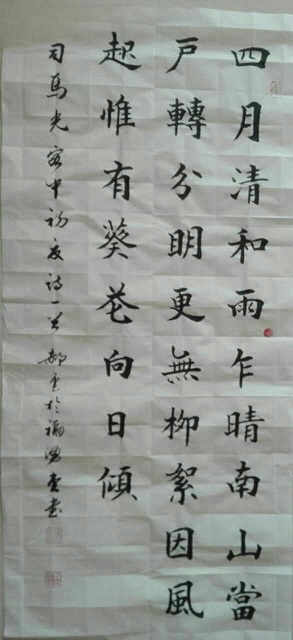 四月清和雨乍晴南山當
戶轉分明更無柳絮因風
起惟有葵花向日傾
司馬光客中初夏詩一首